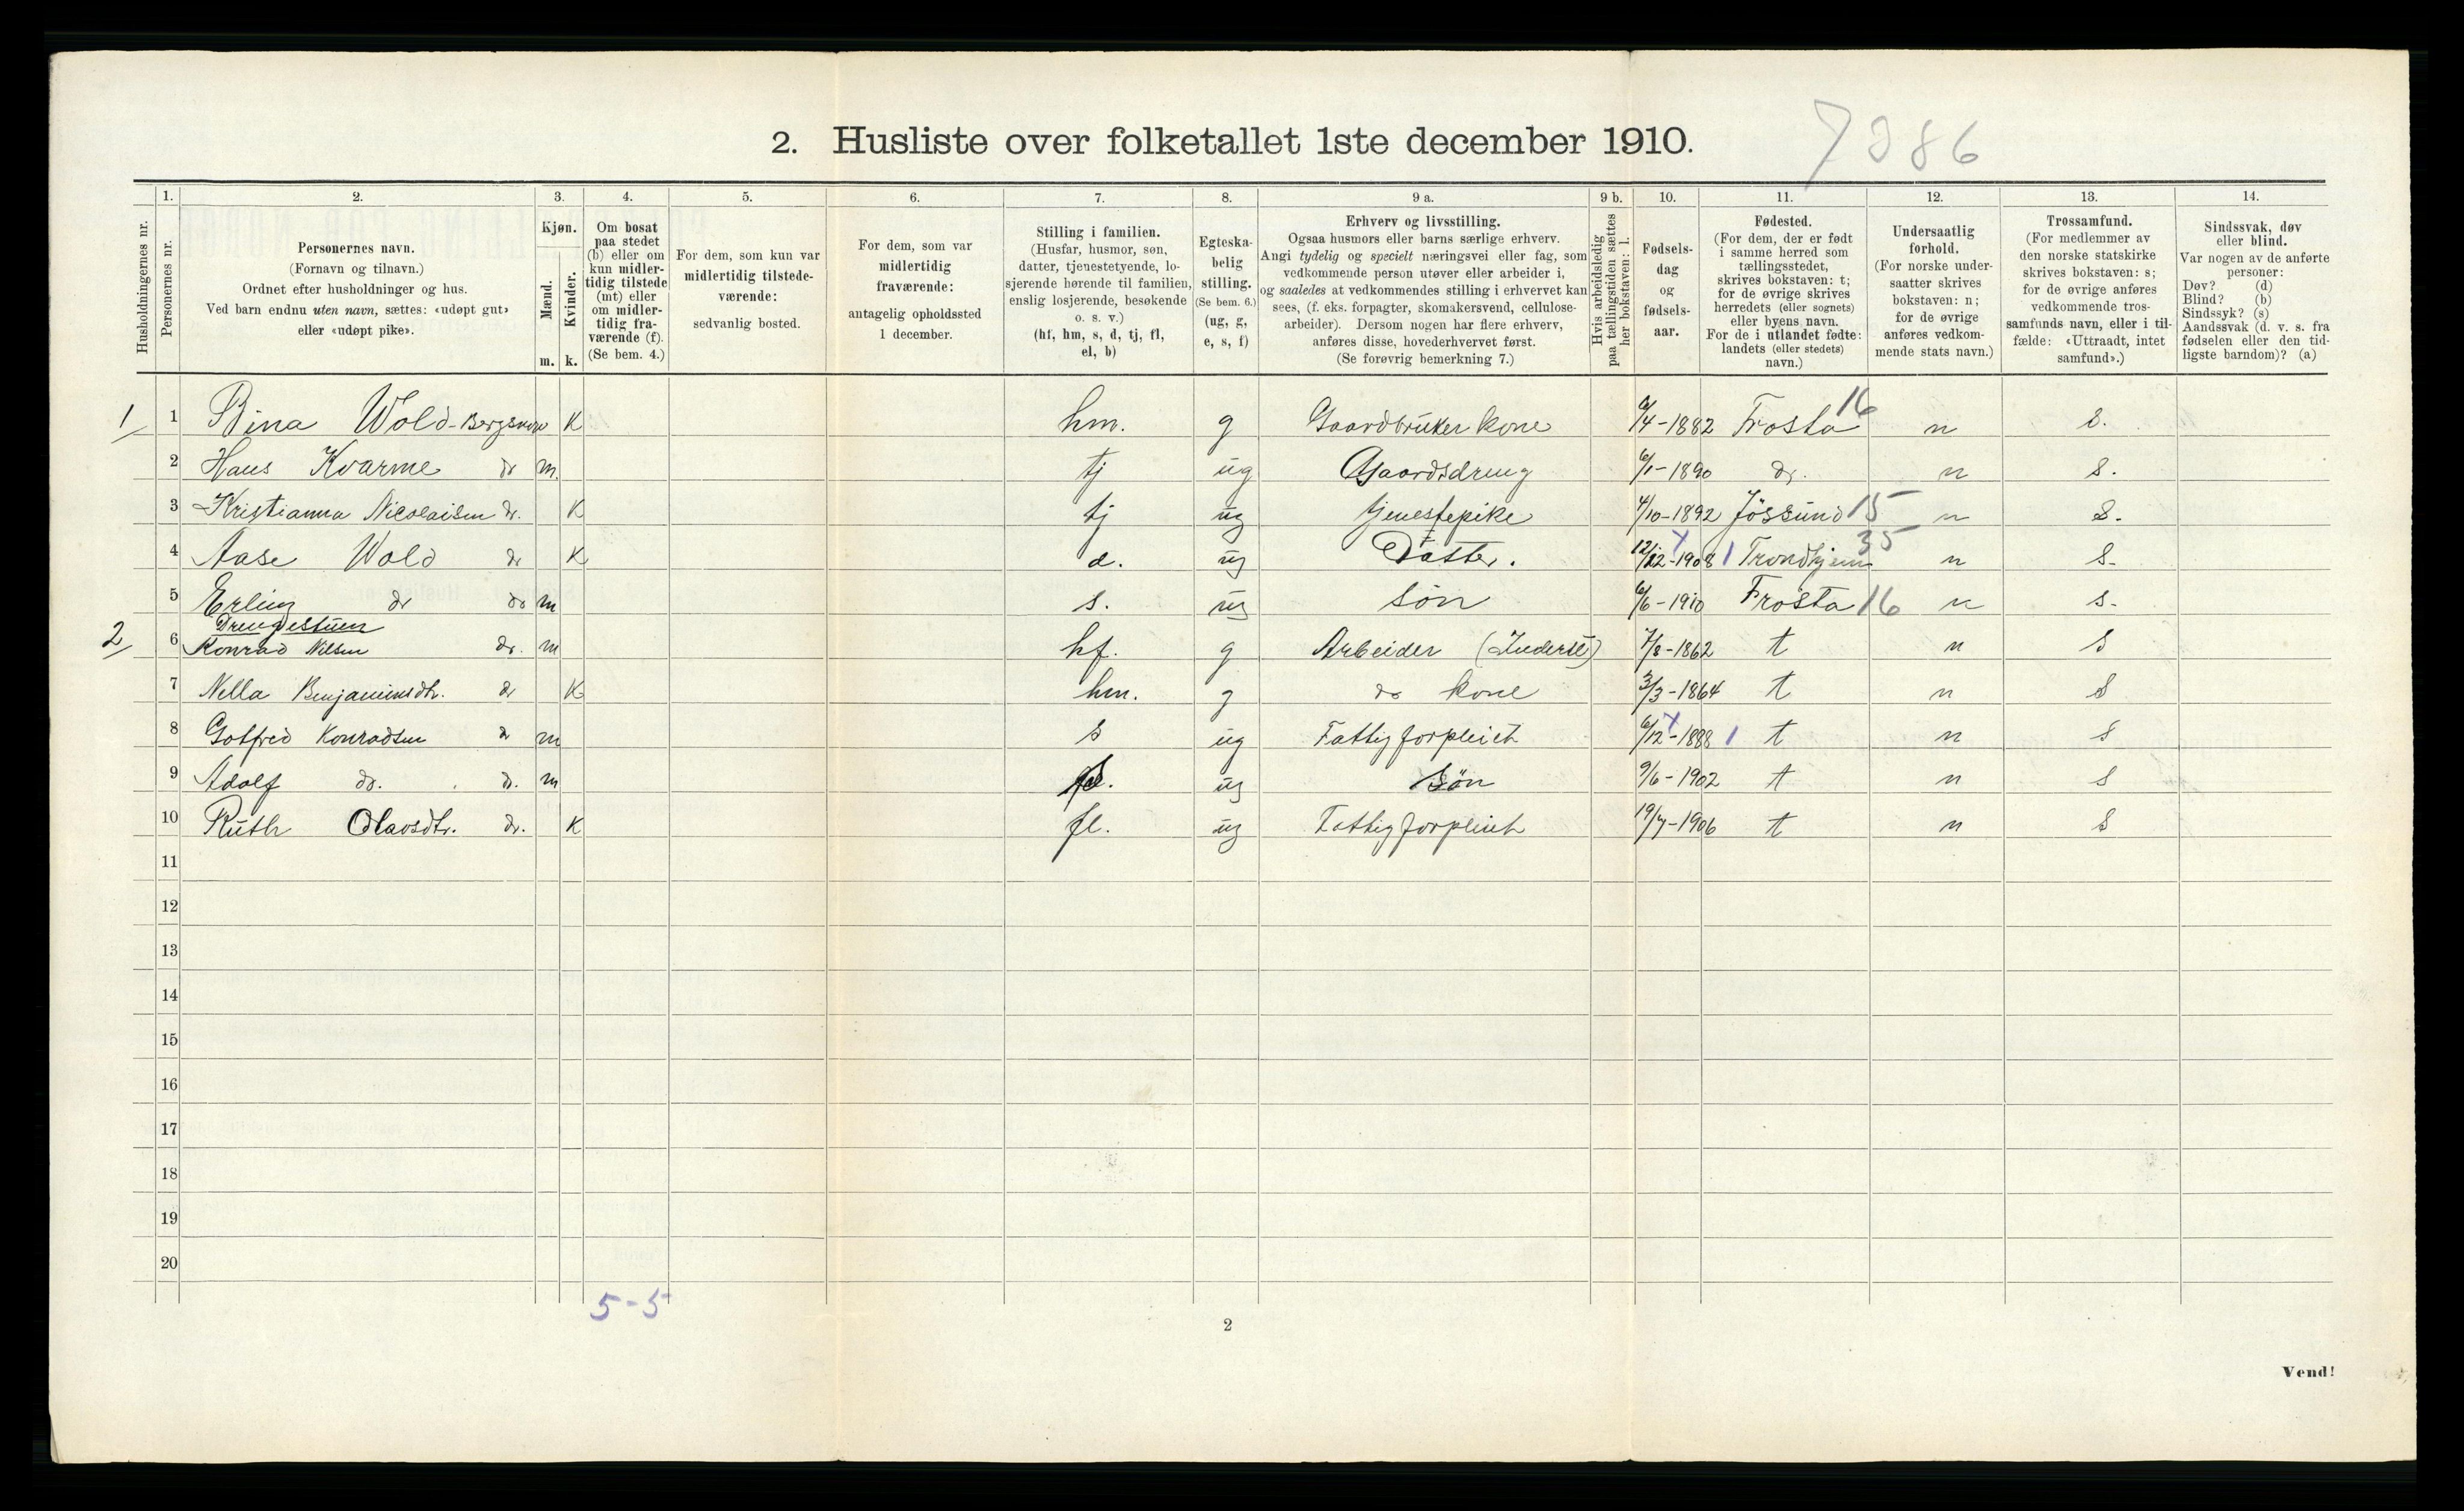 2. Husliste over folketallet 1ste december 1910.
7886
Husholdningernes nr.
1.
Personernes nr.
2.
Personernes navn.
(Fornavn og tilnavn.)
Ordnet efter husholdninger og hus.
Ved barn endnu uten navn, sættes: «udøpt gut»
eller «udøpt pike».
3.
Kjøn.
Mænd.
Kvinder.
m. k.
4.
Om bosat
paa stedet
(b) eller om
kun midler-
tidig tilstede
(mt) eller
om midler-
tidig fra-
værende (f).
(Se bem. 4.)
5.
For dem, som kun var
midlertidig tilstede-
værende:
sedvanlig bosted.
6.
For dem, som var
midlertidig
fraværende:
antagelig opholdssted
1 december.
7.
Stilling i familien.
(Husfar, husmor, søn,
datter, tjenestetyende, lo-
sjerende hørende til familien,
enslig losjerende, besøkende
o. s. v.)
(hf, hm, s, d, tj, fl,
el, b)
8.
Egteska-
belig
stilling.
(Se bem. 6.)
(ug, g,
e, s, f)
9 a.
Erhverv og livsstilling.
Ogsaa husmors eller barns særlige erhverv.
Angi tydelig og specielt næringsvei eller fag, som
vedkommende person utøver eller arbeider i,
og saaledes at vedkommendes stilling i erhvervet kan
sees, (f. eks. forpagter, skomakersvend, cellulose-
arbeider). Dersom nogen har flere erhverv,
anføres disse, hovederhvervet først.
(Se forøvrig bemerkning 7.)
9 b.
Hvis arbeidsledig
paa tællingstiden sættes
her bokstaven: l.
10.
Fødsels-
dag
og
fødsels-
aar.
11.
Fødested.
(For dem, der er født
i samme herred som
tællingsstedet,
skrives bokstaven: t;
for de øvrige skrives
herredets (eller sognets)
eller byens navn.
For de i utlandet fødte:
landets (eller stedets)
navn.)
12.
Undersaatlig
forhold.
(For norske under-
saatter skrives
bokstaven: n;
for de øvrige
anføres vedkom-
mende stats navn.)
13.
Trossamfund.
(For medlemmer av
den norske statskirke
skrives bokstaven: s;
for de øvrige anføres
vedkommende tros-
samfunds navn, eller i til-
fælde: «Uttraadt, intet
samfund».)
14.
Sindssvak, døv
eller blind.
Var nogen av de anførte
personer:
Døv? (d)
Blind? (b)
Sindssyk? (s)
Aandssvak (d. v. s. fra
fødselen eller den tid-
ligste barndom)? (a)
1 1 Bina Wold-Bergsmo K hm. g Gaardbruker kone 6/4-1882 Frosta 16 n s.
2 Hans Kvarme do m. tj ug Gaardsdreng 6/1-1890 do. n s.
3 Kristianna Nicolaisen do. K tj ug tjenestepike 4/10-1892 Jössund 15 n s.
4 Aase Wold do K d. ug Datter. 12/12-1908 1 Trondhjem 35 n s.
5 Erling do do m s. ug søn 6/6-1910 Frosta 16 n s.
Drengestuen
2 6 Konrad Nilsen do. m hf. g Arbeider (Inderst) 7/8-1862 t n s
7 Nella Benjaminsdtr. do K hm. g do kone 3/3-1864 t n s
8 Gotfred Konradsen do m s ug Fattigforpleiet 6/12-1888 1 t n s
9 Adolf do. do. m s. ug Søn 9/6-1902 t n s
10 Ruth Olavsdtr. do. K fl. ug Fattigforpleiet 19/7-1906 t n s
11
12
13
14
15
16
17
18
19
20
5-5
2
Vend!